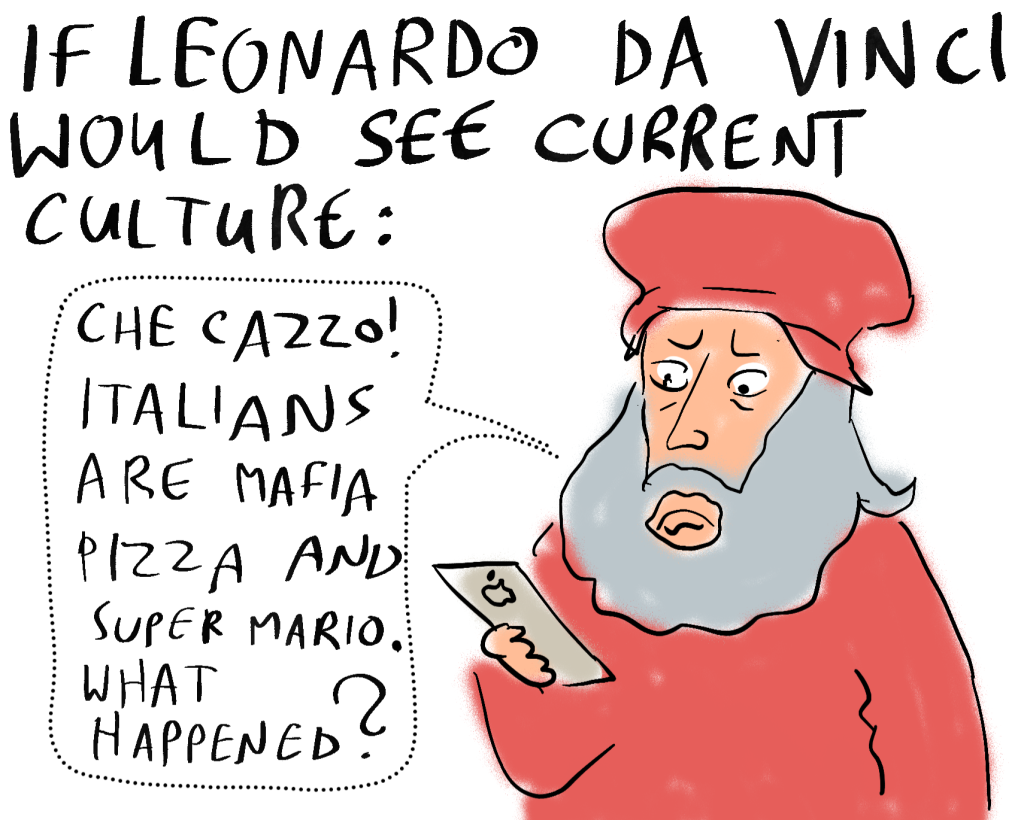 IF LEONARDO DA VINCI
WOULD SEE CURRENT
CULTURE:
CHE CAZZO!
ITALIANS
ARE MAFIA
PIZZA AND
SUPER MARIO.
WHAT
HAPPENED?